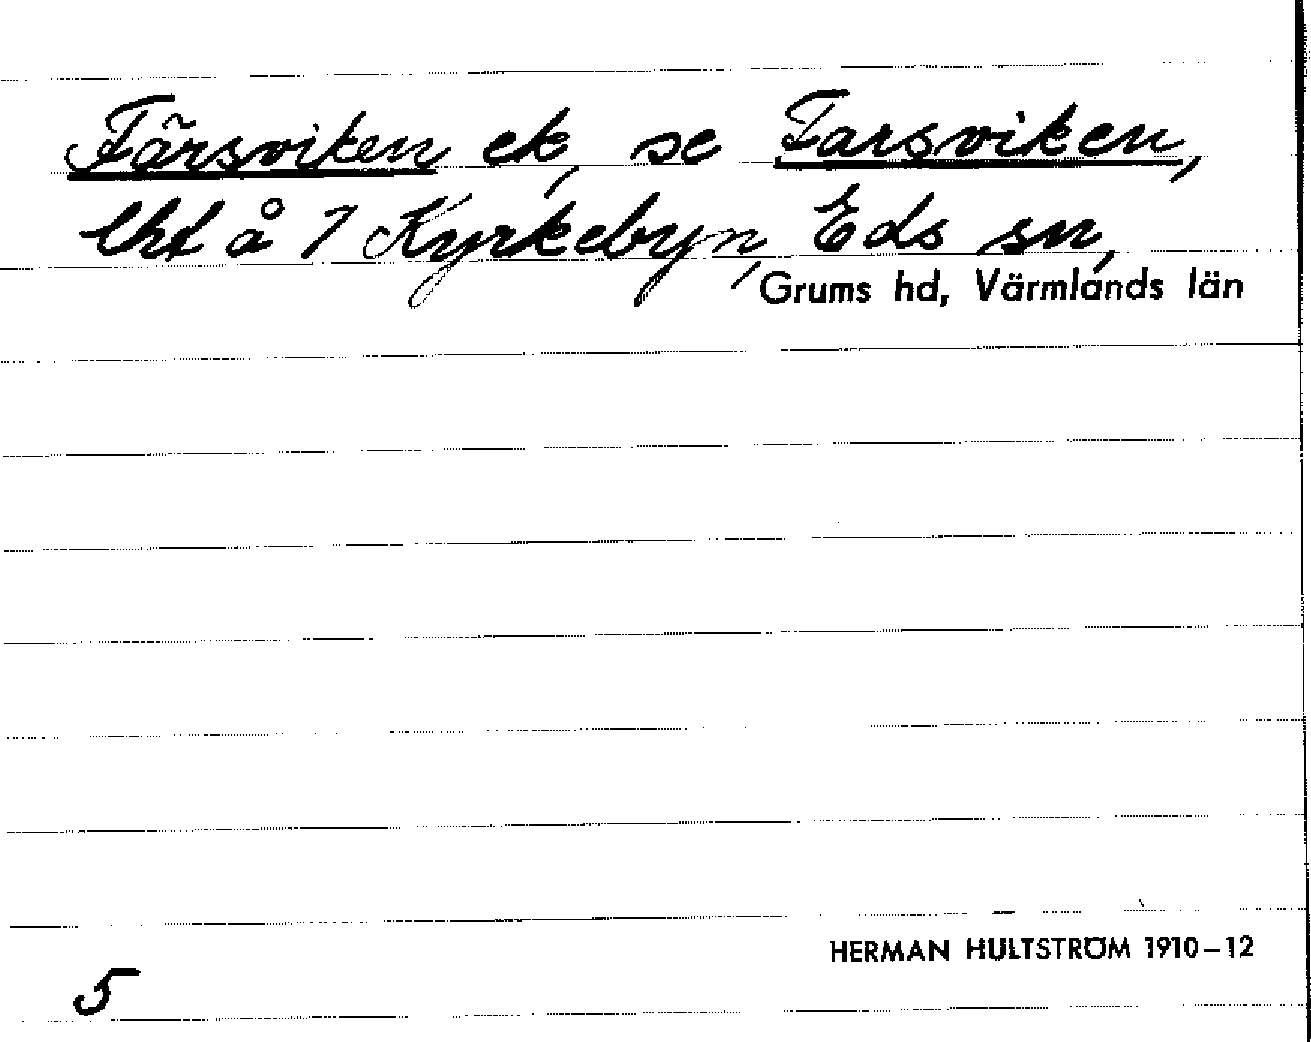 Färsviken ek, se Farsviken,
lht å 7 Kyrkebyn, Eds sn,
Grums hd, Värmlands län
HERMAN HULTSTRÖM 1910–12
5